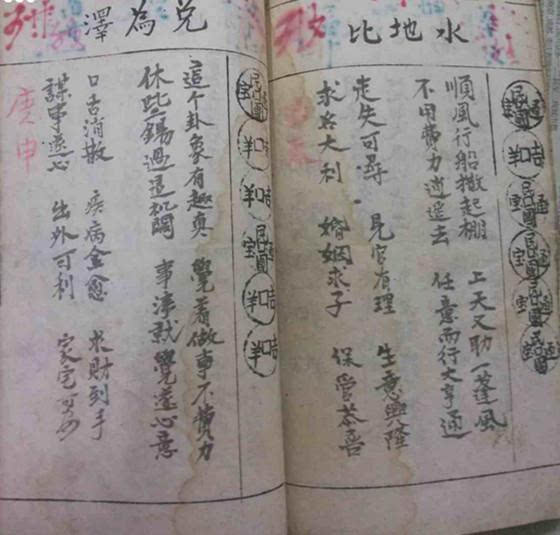 水地比
順風行船撒起棚 上天又助一蓬風
不用費力逍遙去 任意而行大亨通
走失可尋 見官有理 生意興隆
求名大利 婚姻求子 保管恭喜
兌為澤
這个卦象有趣真 覺着做事不費力
休此錯過這机関 事凈就覺遂心意
口舌消散 疾病全愈 求財到手
謀事遂心 出外可利 家宅
庚申